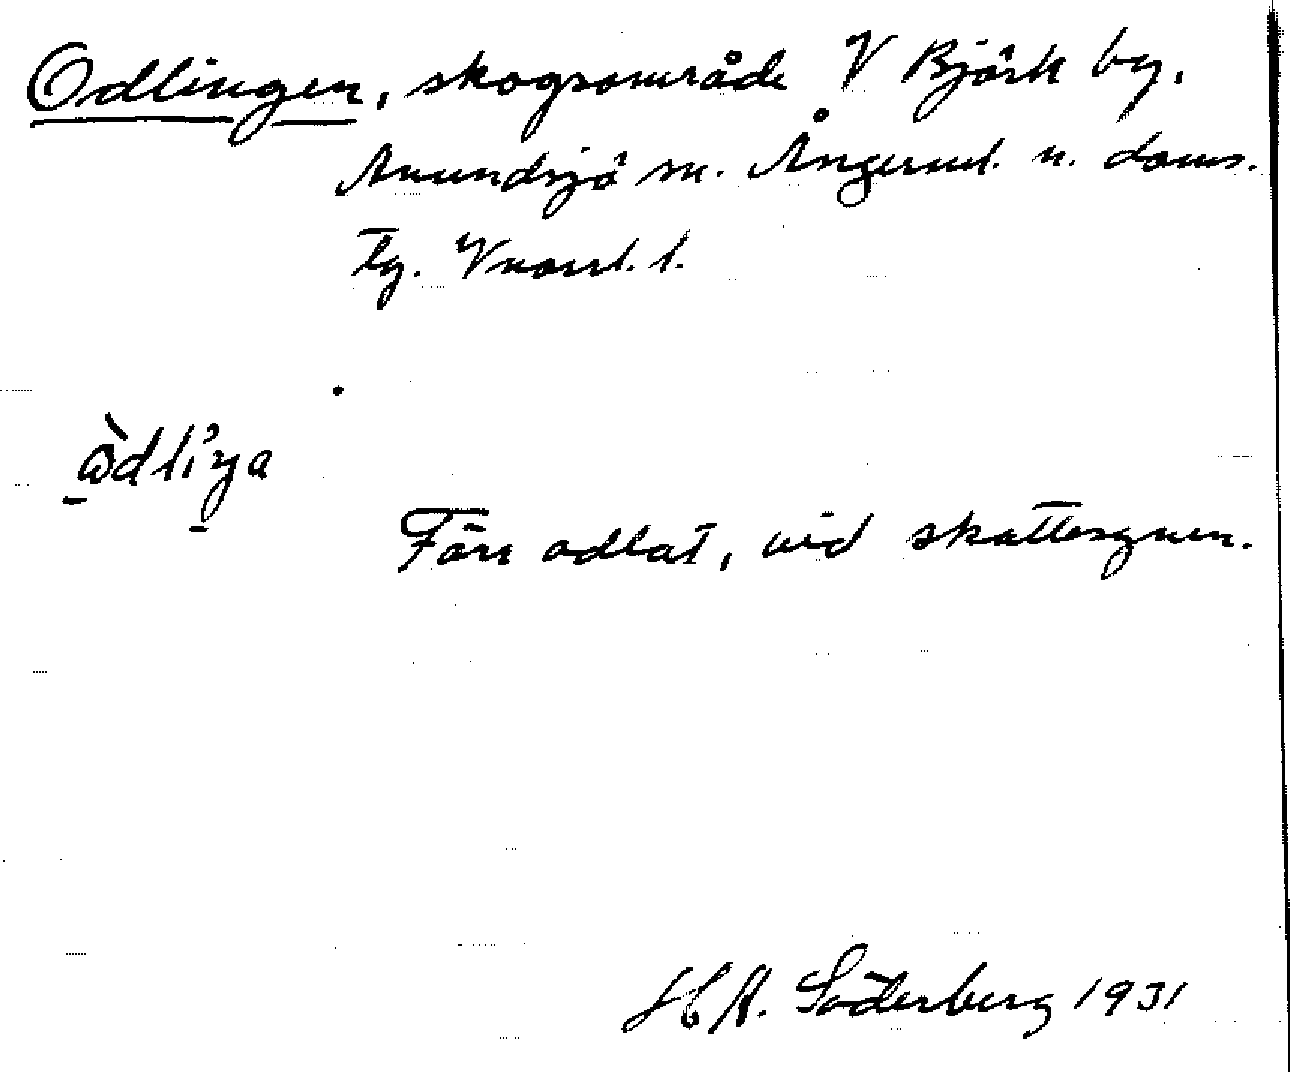 Odlingen, skogsområde V Björk by.
Anundsjö sn. Ångerml. n. doms.
tg. Vnorrl. l.
Förr odlat, vid skattesynen.
H A. Söderberg 1931